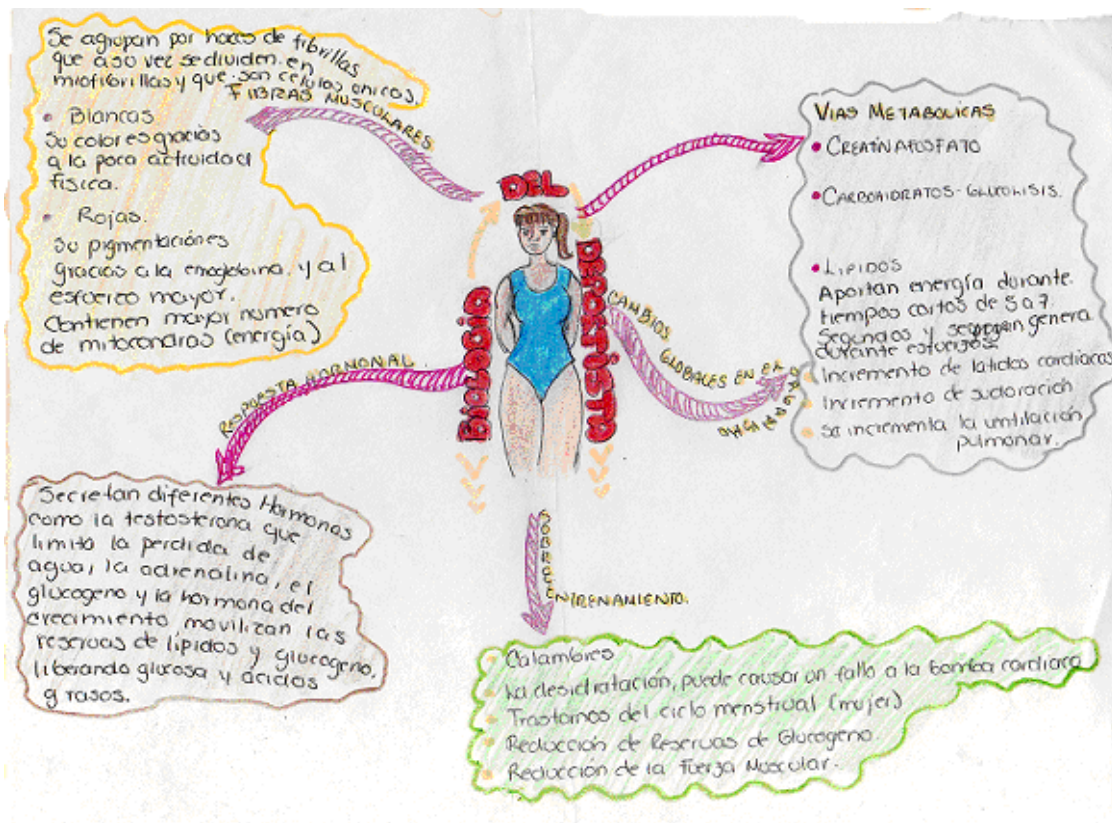 Biologia
DEL
DEPORTISTA
Se agrupan por haces de fibrillas
que a su vez se dividen en
miofibrillas y que son celulas unicas.
FIBRAS MUSCULARES
• Blancas
Su color es gracias
a la poca actividad
fisica.
• Rojas.
Su pigmentación es
gracias a la emoglobina. y al
esfuerzo mayor.
Contienen mayor numero
de mitocondras (energía)
VIAS METABOLICAS
• CREATINAFOSFATO
• CARBOHIDRATOS - GLUCOLISIS.
• LIPIDOS
Aportan energía durante
tiempos cortos de 5 a 7
segundos y genera
durante esfuerzos
CAMBIOS GLOBALES EN EL ORGANISMO
Incremento de latidos cardiacos
Incremento de sudoración
se incrementa la ventilación
pulmonar.
RESPUESTA HORMONAL.
Secretan diferentes Hormonas
como la testosterona que
limito la perdida de
agua, la adrenalina, el
glucogeno y la hormona del
crecimiento movilizan las
reservas de lipidos y glucogeno,
liberando glucosa y acidos
grasos.
SOBRE ENTRENAMIENTO.
Calambres
La desidratación, puede causar un fallo a la bomba cardiaca
Trastornos del ciclo menstrual (mujer)
Reducción de Reservas de Glucogeno.
Reducción de la Fuerza Muscular.